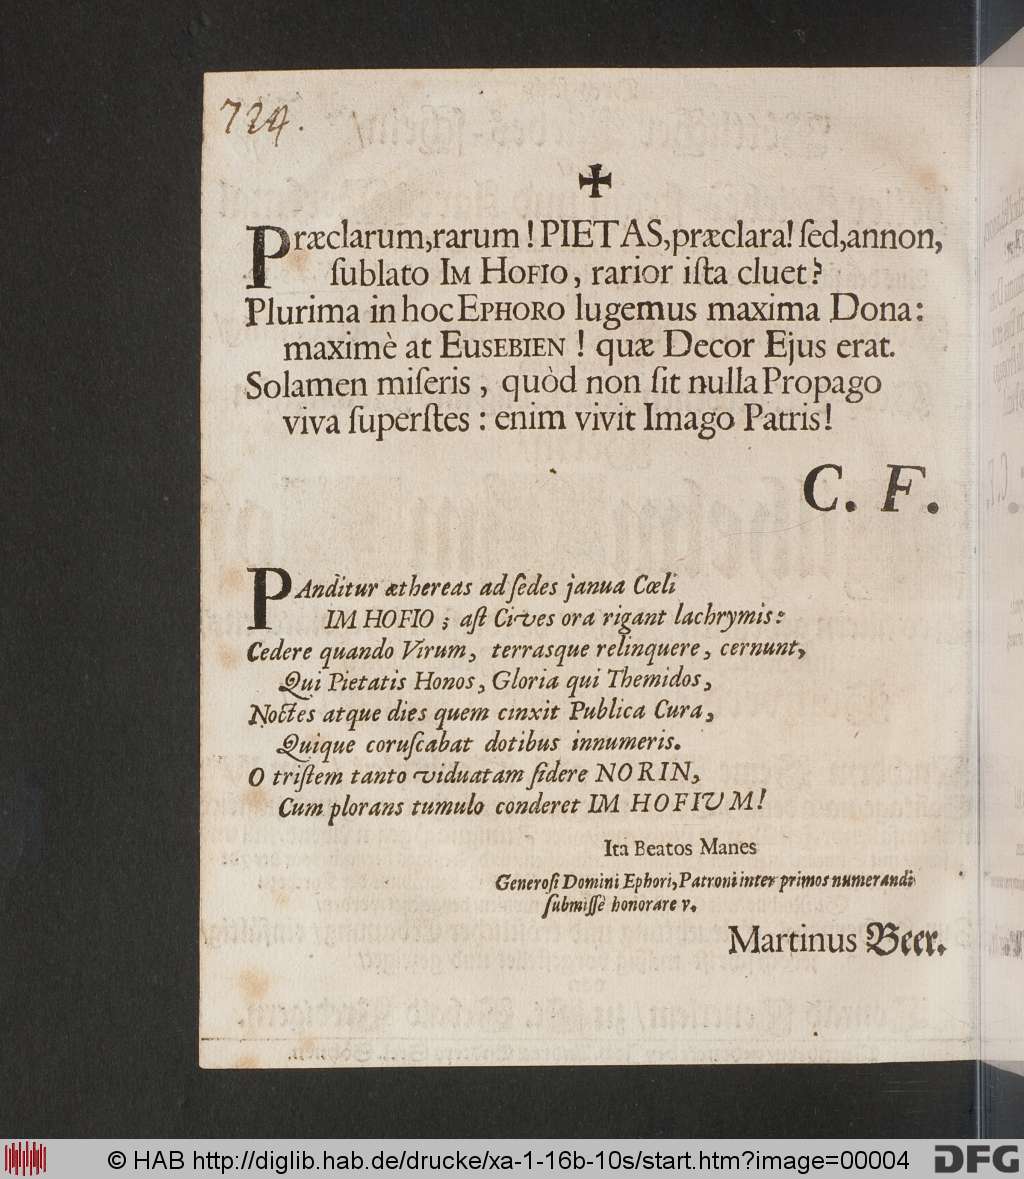 724.
✠
Præclarum,rarum! PIETAS,præclara! ſed,annon,
ſublato IM HOFIO, rarior iſta cluet?
Plurima in hoc EPHORO lugemus maxima Dona:
maximè at EUSEBIEN! quæ Decor Ejus erat.
Solamen miſeris, quòd non ſit nulla Propago
viva ſuperſtes: enim vivit Imago Patris!
C. F.
PAnditur æthereas ad ſedes janua Cœli
IM HOFIO; aſt Cives ora rigant lachrymis:
Cedere quando Virum, terrasque relinquere, cernunt,
Qui Pietatis Honos, Gloria qui Themidos,
Noctes atque dies quem cinxit Publica Cura,
Quique coruſcabat dotibus innumeris.
O triſtem tanto viduatam ſidere NORIN,
Cum plorans tumulo conderet IM HOFIUM!
Ita Beatos Manes
Generoſi Domini Ephori, Patroni inter primos numerandi
ſubmiſſè honorare v.
Martinus Beer.
© HAB http://diglib.hab.de/drucke/xa-1-16b-10s/start.htm?image=00004
DFG